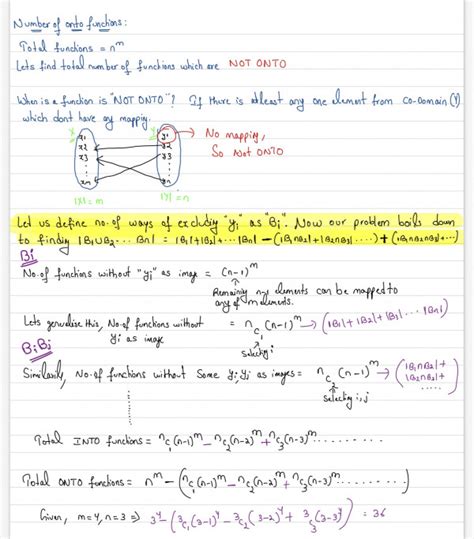 Number of onto functions:
Total functions = n^m
Lets find total number of functions which are NOT ONTO
When is a function is "NOT ONTO"? If there is atleast any one element from co-domain (Y)
which dont have any mapping.
X Y
x1 y1 → No mapping,
x2 y2 So NOT ONTO
x3 y3
⋮ ⋮
xm yn
|X| = m |Y| = n
Let us define no. of ways of excludig "yi" as "Bi". Now our problem boils down
to findig |B1UB2... Bn| = |B1|+|B2|+...|Bn| - (|B1∩B2|+|B2∩B3|....) + (|B1∩B2∩B3|+...)
Bi
No. of functions without "yi" as image = (n-1)^m
Remaining n-1 elements can be mapped to
any of m elements.
Lets genralise this, No. of functions without = nC1 (n-1)^m → (|B1|+|B2|+|B3|... |Bn|)
yi as image selectig i
BiBj
Similarly, No. of functions without some yi,yj as images = nC2 (n-2)^m → (|B1∩B2|+
|B2∩B3|+
selectig i,j
Total INTO functions = nC1 (n-1)^m - nC2 (n-2)^m + nC3 (n-3)^m .........
Total ONTO functions = n^m - (nC1 (n-1)^m - nC2 (n-2)^m + nC3 (n-3)^m .........
Given, m=4, n=3 ⇒ 3^4 - (3C1 (3-1)^4 - 3C2 (3-2)^4 + 3C3 (3-3)^4) = 36